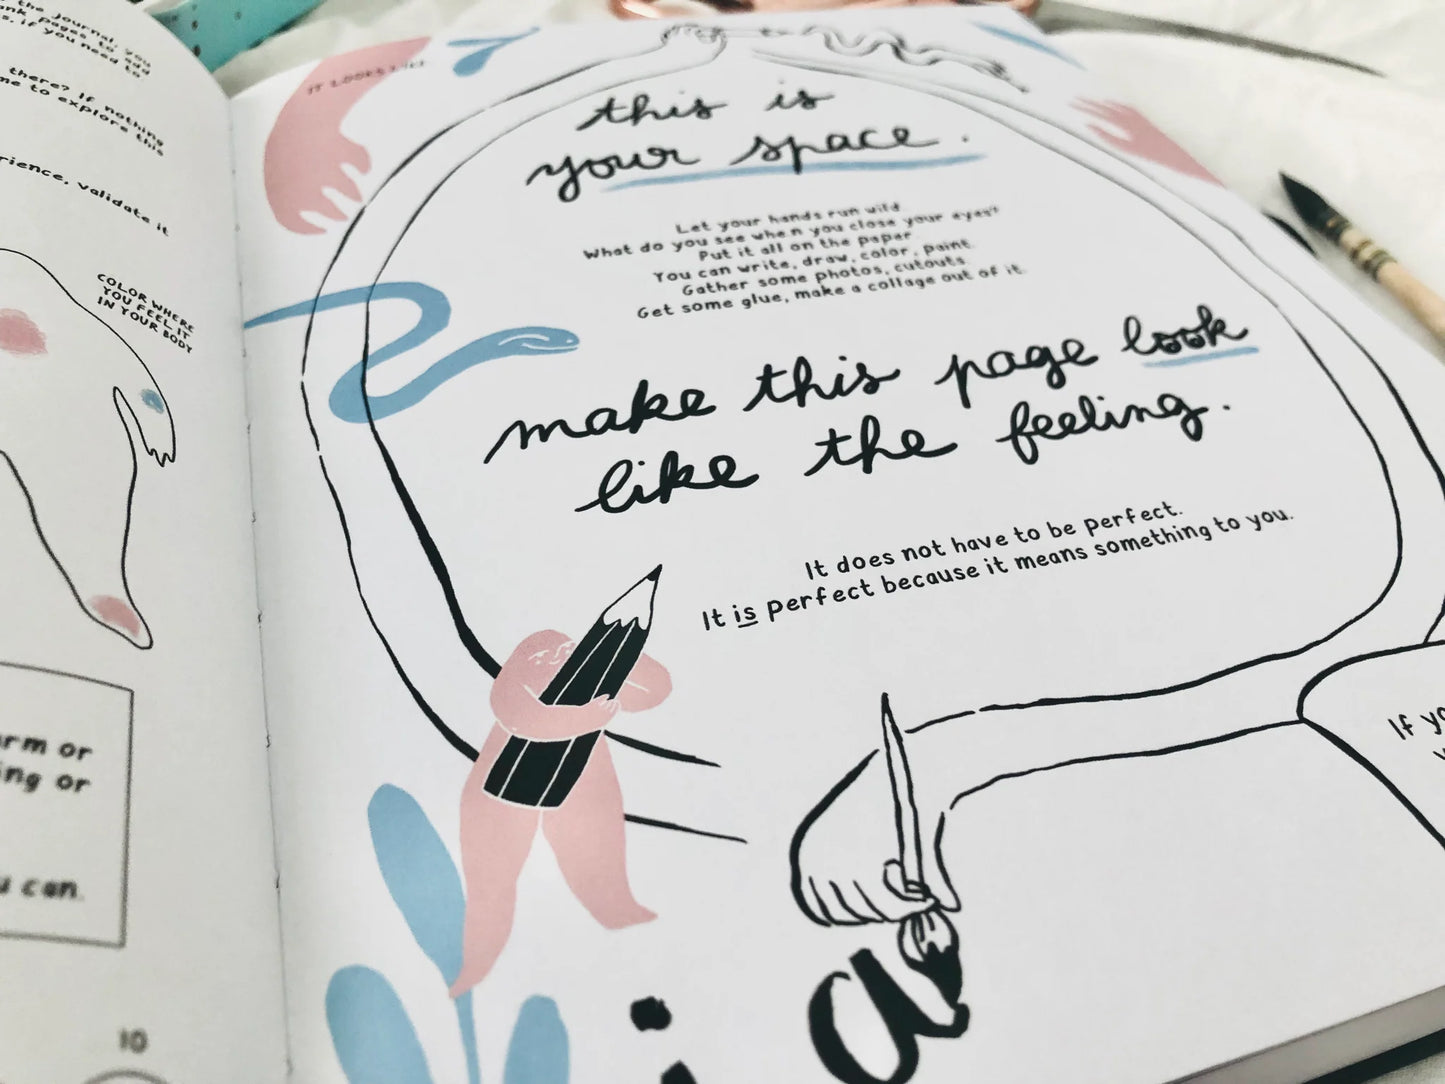 the journal, you
pages to add
if you need to
there? If nothing
me to explore this
validate it
COLOR WHERE
YOU FEEL IT
IN YOUR BODY
or
or
can
10
IT LOOKS LIKE
this is
your space.
Let your hands run wild
What do you see when you close your eyes?
Put it all on the paper
You can write, draw, color, paint.
Gather some photos, cutouts.
Get some glue, make a collage out of it
make this page look
like the feeling.
It does not have to be perfect.
It is perfect because it means something to you.
If